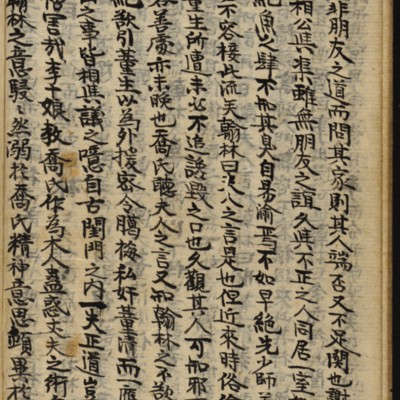 非朋友之道而問其家則其人端否又不足関也謝
相公與渠雖無朋友之誼久與不正之人同居一室
魚之肆不知其臭自易渝焉不如早絶先少師
不容接此流矣翰林曰夫人之言是也但近來時俗
董生所遭未必不造誘毀之口也久觀其人可知邪
善處亦未晩也喬氏聽夫人之言又知翰林之不欲
絶欲引董生以為外援密令臘梅私奸董清而一應
之事皆相與議之噫自古閨門之內一失正道豈
害哉李十娘教喬氏作為木人蠱惑丈夫之術
翰林之意駸々然溺於喬氏精神意思頓異於